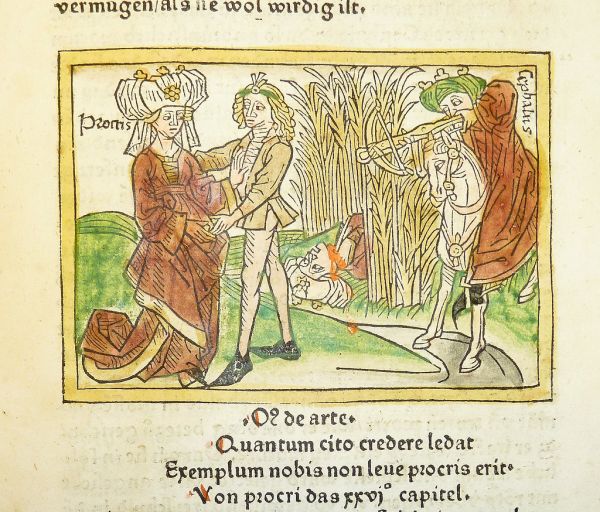 vermugen/als sie wol wirdig ist.
Procris
Cephalus
O2 de arte.
Quantum cito credere ledat
Exemplum nobis non leue procris erit.
Von procri das xxvjº capitel.